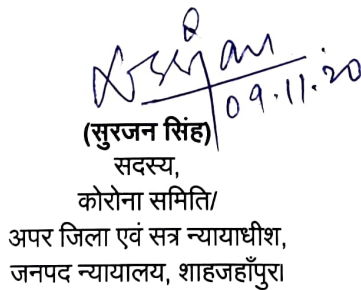 09.11.20
(सुरजन सिंह)
सदस्य,
कोरोना समिति/
अपर जिला एवं सत्र न्यायाधीश,
जनपद न्यायालय, शाहजहाँपुर।